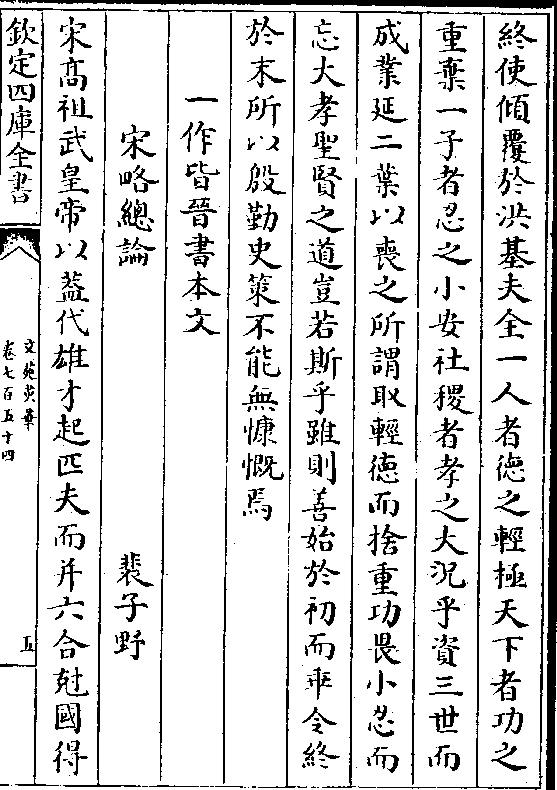 終使傾覆於洪基夫全一人者德之輕極天下者功之
重棄一子者忍之小安社稷者孝之大況乎資三世而
成業延二葉以喪之所謂取輕德而捨重功畏小忍而
忘大孝聖賢之道豈若斯乎雖則善始於初而乖令終
於末所以殷勤史策不能無慷慨焉
一作皆晉書本文
宋略總論 裴子野
宋髙祖武皇帝以葢代雄才起匹夫而并六合尅國得
欽定四庫全書
文苑英華
卷七百五十四
五